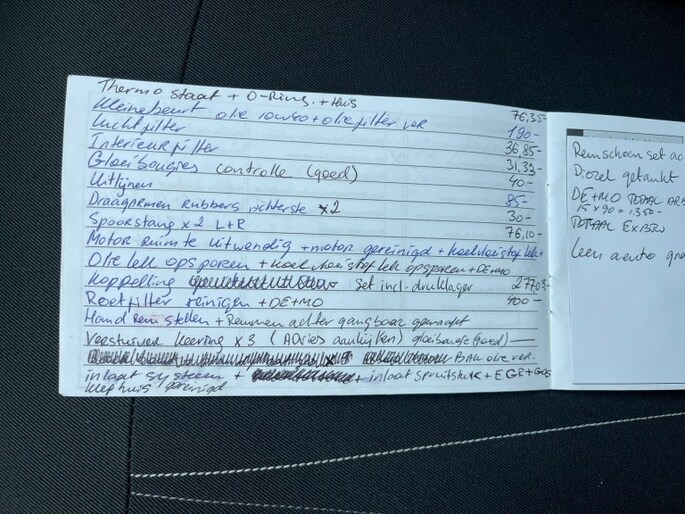 Thermostaat + O-Ring. + Huis 76,35-
Kleine beurt olie 10w40 + oliefilter ver 190-
Luchtfilter 36,85-
Interieurfilter 31,39-
Gloeibougies controlle (goed) 40-
Uitlijnen 85-
Draagarmen Rubbers achterste x2 30-
Spoorstang x2 L+R 76,10-
Motor ruimte uitwendig + motor gereinigd +
Olie lek opsporen + koelvloeistof lek opsporen + DE+MO
Koppeling set incl. druklager
Roetfilter reinigen + DE+MO 400-
Hand Rem stellen + Remmen achter gangbaar gemaakt
Verstuiver keering x3 (Advies aankijken) gloeibougie (goed)
BAK olie ver.
inlaat systeem + + inlaat spruitstuk + EGR + Gas
klephuis gereinigd
Remschoen set ac
Diesel getankt
DE+MO TOTAAL ARB
15 x 90 = 1.350-
TOTAAL EX BTW
Leen auto gra